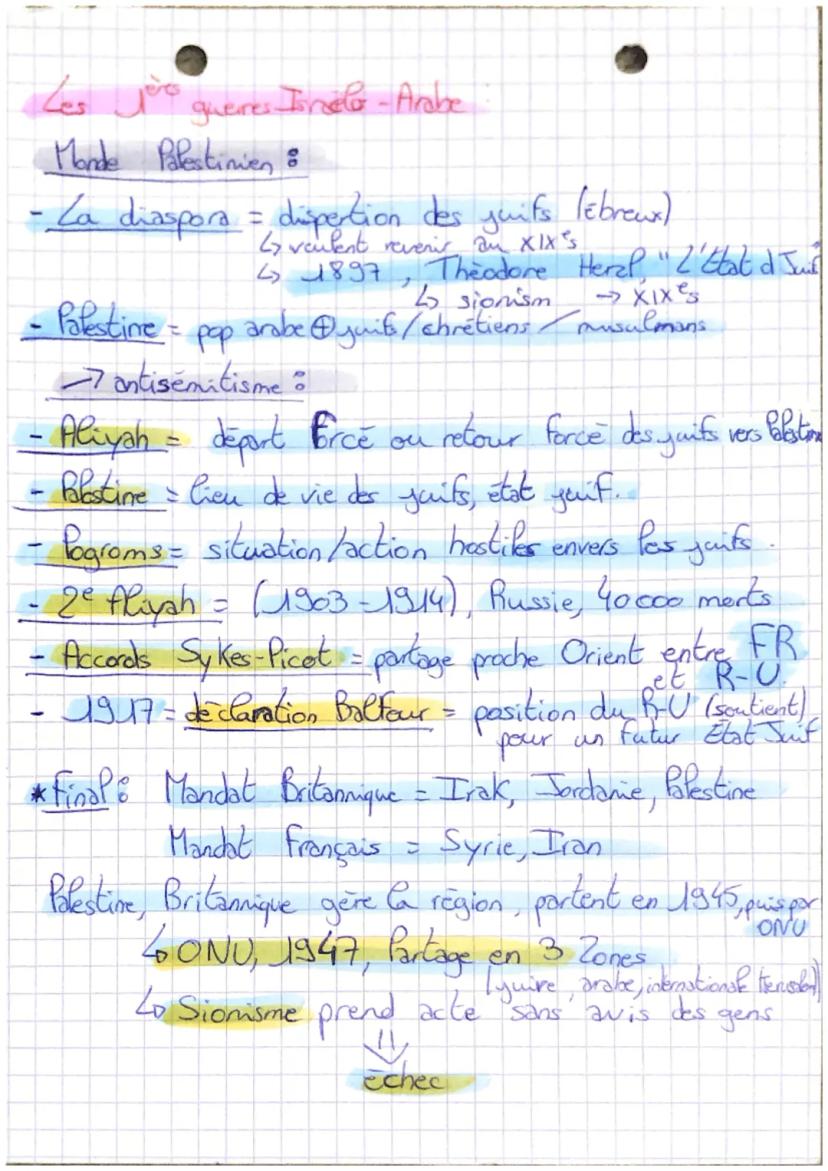 Les 1ères guerres Israélo-Arabe :
Monde Palestinien :
- La diaspora = dispertion des juifs (ébreux)
↳ veulent revenir au XIXe s
↳ 1897, Théodore Herzl, "L'État d Juif
↳ sionism → XIXe s
- Palestine = pop arabe ⊕ juifs/chrétiens/musulmans
→ antisémitisme :
- Aliyah = départ forcé ou retour forcé des juifs vers Palestine
- Palestine = lieu de vie des juifs, état juif.
- Pogroms = situation/action hostiles envers les juifs.
- 2e Aliyah = (1903-1914), Russie, 40 000 morts
- Accords Sykes-Picot = partage proche Orient entre FR
et R-U.
- 1917 = déclaration Balfour = position du R-U (soutient)
pour un futur État Juif
* Final : Mandat Britannique = Irak, Jordanie, Palestine
Mandat Français = Syrie, Iran
Palestine, Britannique gère la région, partent en 1945, puis par
ONU
↳ ONU, 1947, Partage en 3 Zones
(juive, arabe, internationale Jérusalem)
↳ Sionisme prend acte sans avis des gens
⇓
échec